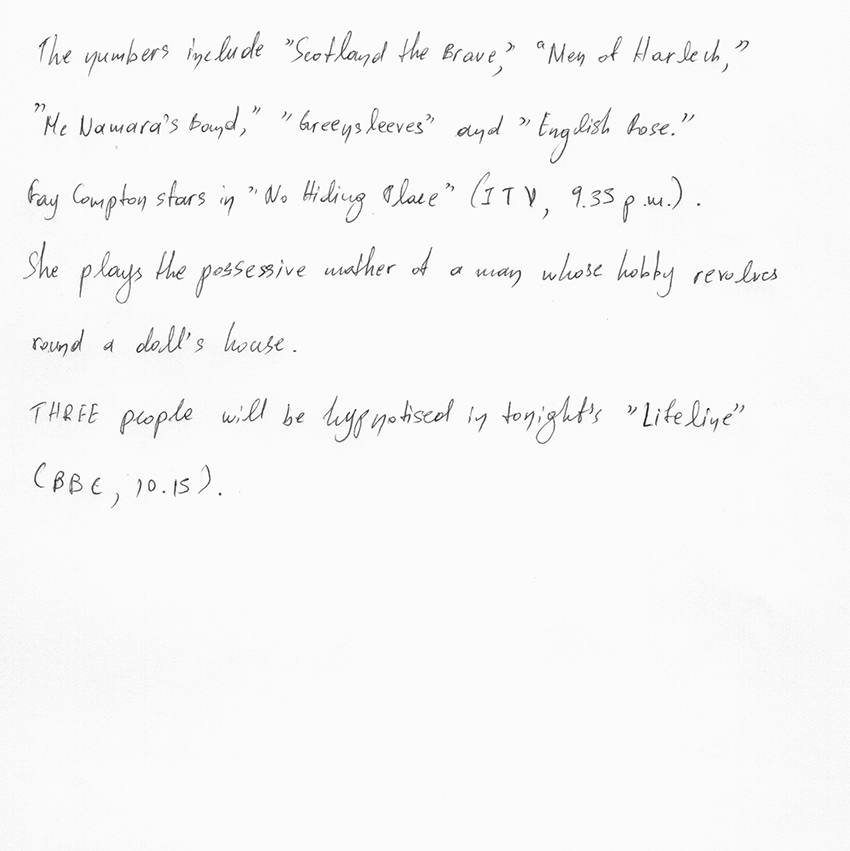 The numbers include "Scotland the Brave," "Men of Harlech,"
"McNamara's Band," "Greensleeves" and "English Rose."
Fay Compton stars in "No Hiding Place" (ITV, 9.35 p.m.).
She plays the possessive mother of a man whose hobby revolves
round a doll's house.
THREE people will be hypnotised in tonight's "Lifeline"
(BBC, 10.15).